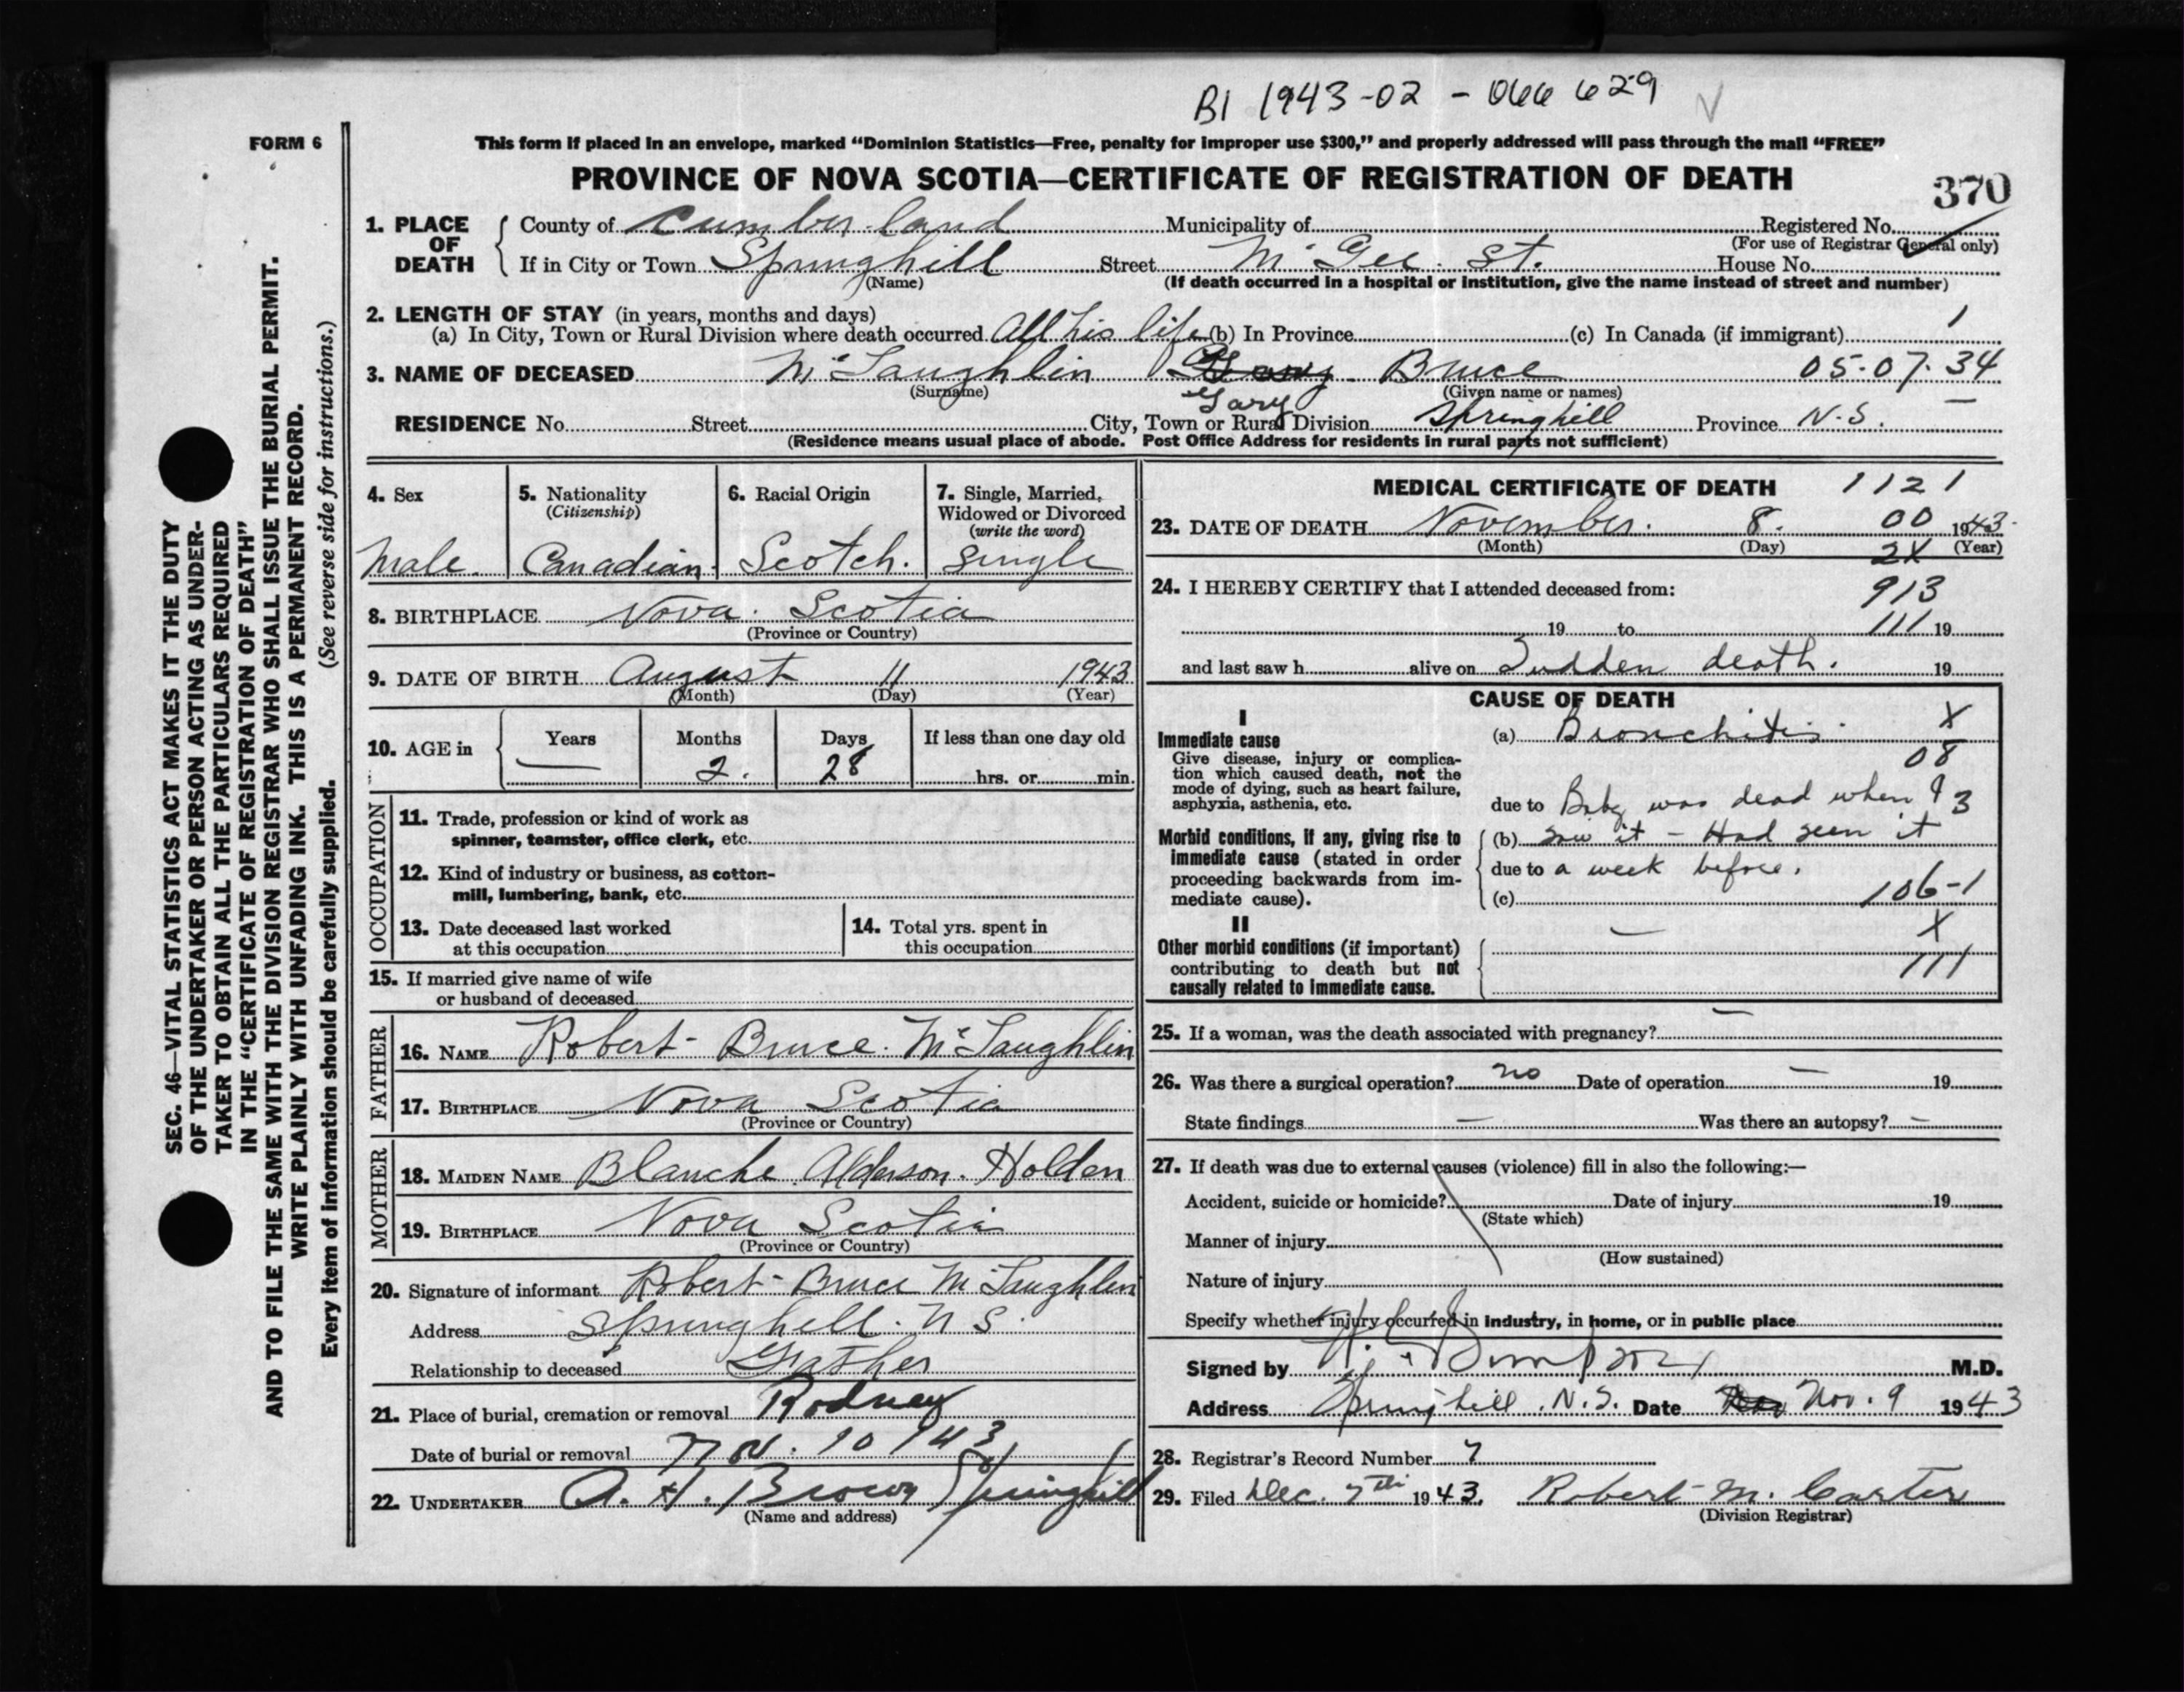 B1 1943-02 - 066629
FORM 6
This form if placed in an envelope, marked “Dominion Statistics—Free, penalty for improper use $300,” and properly addressed will pass through the mail “FREE”
PROVINCE OF NOVA SCOTIA—CERTIFICATE OF REGISTRATION OF DEATH
370
1. PLACE OF DEATH
County of Cumberland Municipality of Registered No.
(For use of Registrar General only)
If in City or Town Springhill Street McGee St. House No.
(Name) (If death occurred in a hospital or institution, give the name instead of street and number)
2. LENGTH OF STAY (in years, months and days) 1
(a) In City, Town or Rural Division where death occurred All his life (b) In Province (c) In Canada (if immigrant)
3. NAME OF DECEASED McLaughlin Gary Bruce 05-07-34
(Surname) (Given name or names)
RESIDENCE No. Street City, Town or Rural Division Springhill Province N.S.
(Residence means usual place of abode. Post Office Address for residents in rural parts not sufficient)
4. Sex
Male.
5. Nationality
(Citizenship)
Canadian.
6. Racial Origin
Scotch.
7. Single, Married, Widowed or Divorced
(write the word)
Single
8. BIRTHPLACE Nova Scotia
(Province or Country)
9. DATE OF BIRTH August 11 1943
(Month) (Day) (Year)
10. AGE in Years Months Days If less than one day old
— 2. 28 hrs. or min.
OCCUPATION
11. Trade, profession or kind of work as
spinner, teamster, office clerk, etc.
12. Kind of industry or business, as cotton-
mill, lumbering, bank, etc.
13. Date deceased last worked
at this occupation
14. Total yrs. spent in
this occupation
15. If married give name of wife
or husband of deceased
FATHER
16. NAME Robert Bruce McLaughlin
17. BIRTHPLACE Nova Scotia
(Province or Country)
MOTHER
18. MAIDEN NAME Blanche Alderson Holden
19. BIRTHPLACE Nova Scotia
(Province or Country)
20. Signature of informant Robert Bruce McLaughlin
Address Springhill. N S.
Relationship to deceased Father
21. Place of burial, cremation or removal Rodney
Date of burial or removal Nov. 10 1943
22. UNDERTAKER A. H. Brown Springhill
(Name and address)
MEDICAL CERTIFICATE OF DEATH 1121
23. DATE OF DEATH November 8. 00 1943
(Month) (Day) 2X (Year)
24. I HEREBY CERTIFY that I attended deceased from: 913
19 to 111 19
and last saw h alive on Sudden death. 19
CAUSE OF DEATH
I
Immediate cause
Give disease, injury or complica-
tion which caused death, not the
mode of dying, such as heart failure,
asphyxia, asthenia, etc.
(a) Bronchitis X
08
due to Baby was dead when I 3
Morbid conditions, if any, giving rise to
immediate cause (stated in order
proceeding backwards from im-
mediate cause).
(b) saw it - Had seen it
due to a week before.
(c) 106-1
II
Other morbid conditions (if important)
contributing to death but not
causally related to immediate cause.
— X
111
25. If a woman, was the death associated with pregnancy? —
26. Was there a surgical operation? no Date of operation — 19
State findings — Was there an autopsy? —
27. If death was due to external causes (violence) fill in also the following:—
Accident, suicide or homicide? Date of injury 19
(State which)
Manner of injury
(How sustained)
Nature of injury
Specify whether injury occurred in industry, in home, or in public place
Signed by Simpson M.D.
Address Springhill, N.S. Date Nov. 9 1943
28. Registrar's Record Number 7
29. Filed Dec. 7th 1943. Robert M. Carter
(Division Registrar)
SEC. 46—VITAL STATISTICS ACT MAKES IT THE DUTY
OF THE UNDERTAKER OR PERSON ACTING AS UNDER-
TAKER TO OBTAIN ALL THE PARTICULARS REQUIRED
IN THE “CERTIFICATE OF REGISTRATION OF DEATH”
AND TO FILE THE SAME WITH THE DIVISION REGISTRAR WHO SHALL ISSUE THE BURIAL PERMIT.
WRITE PLAINLY WITH UNFADING INK. THIS IS A PERMANENT RECORD.
Every item of information should be carefully supplied. (See reverse side for instructions.)